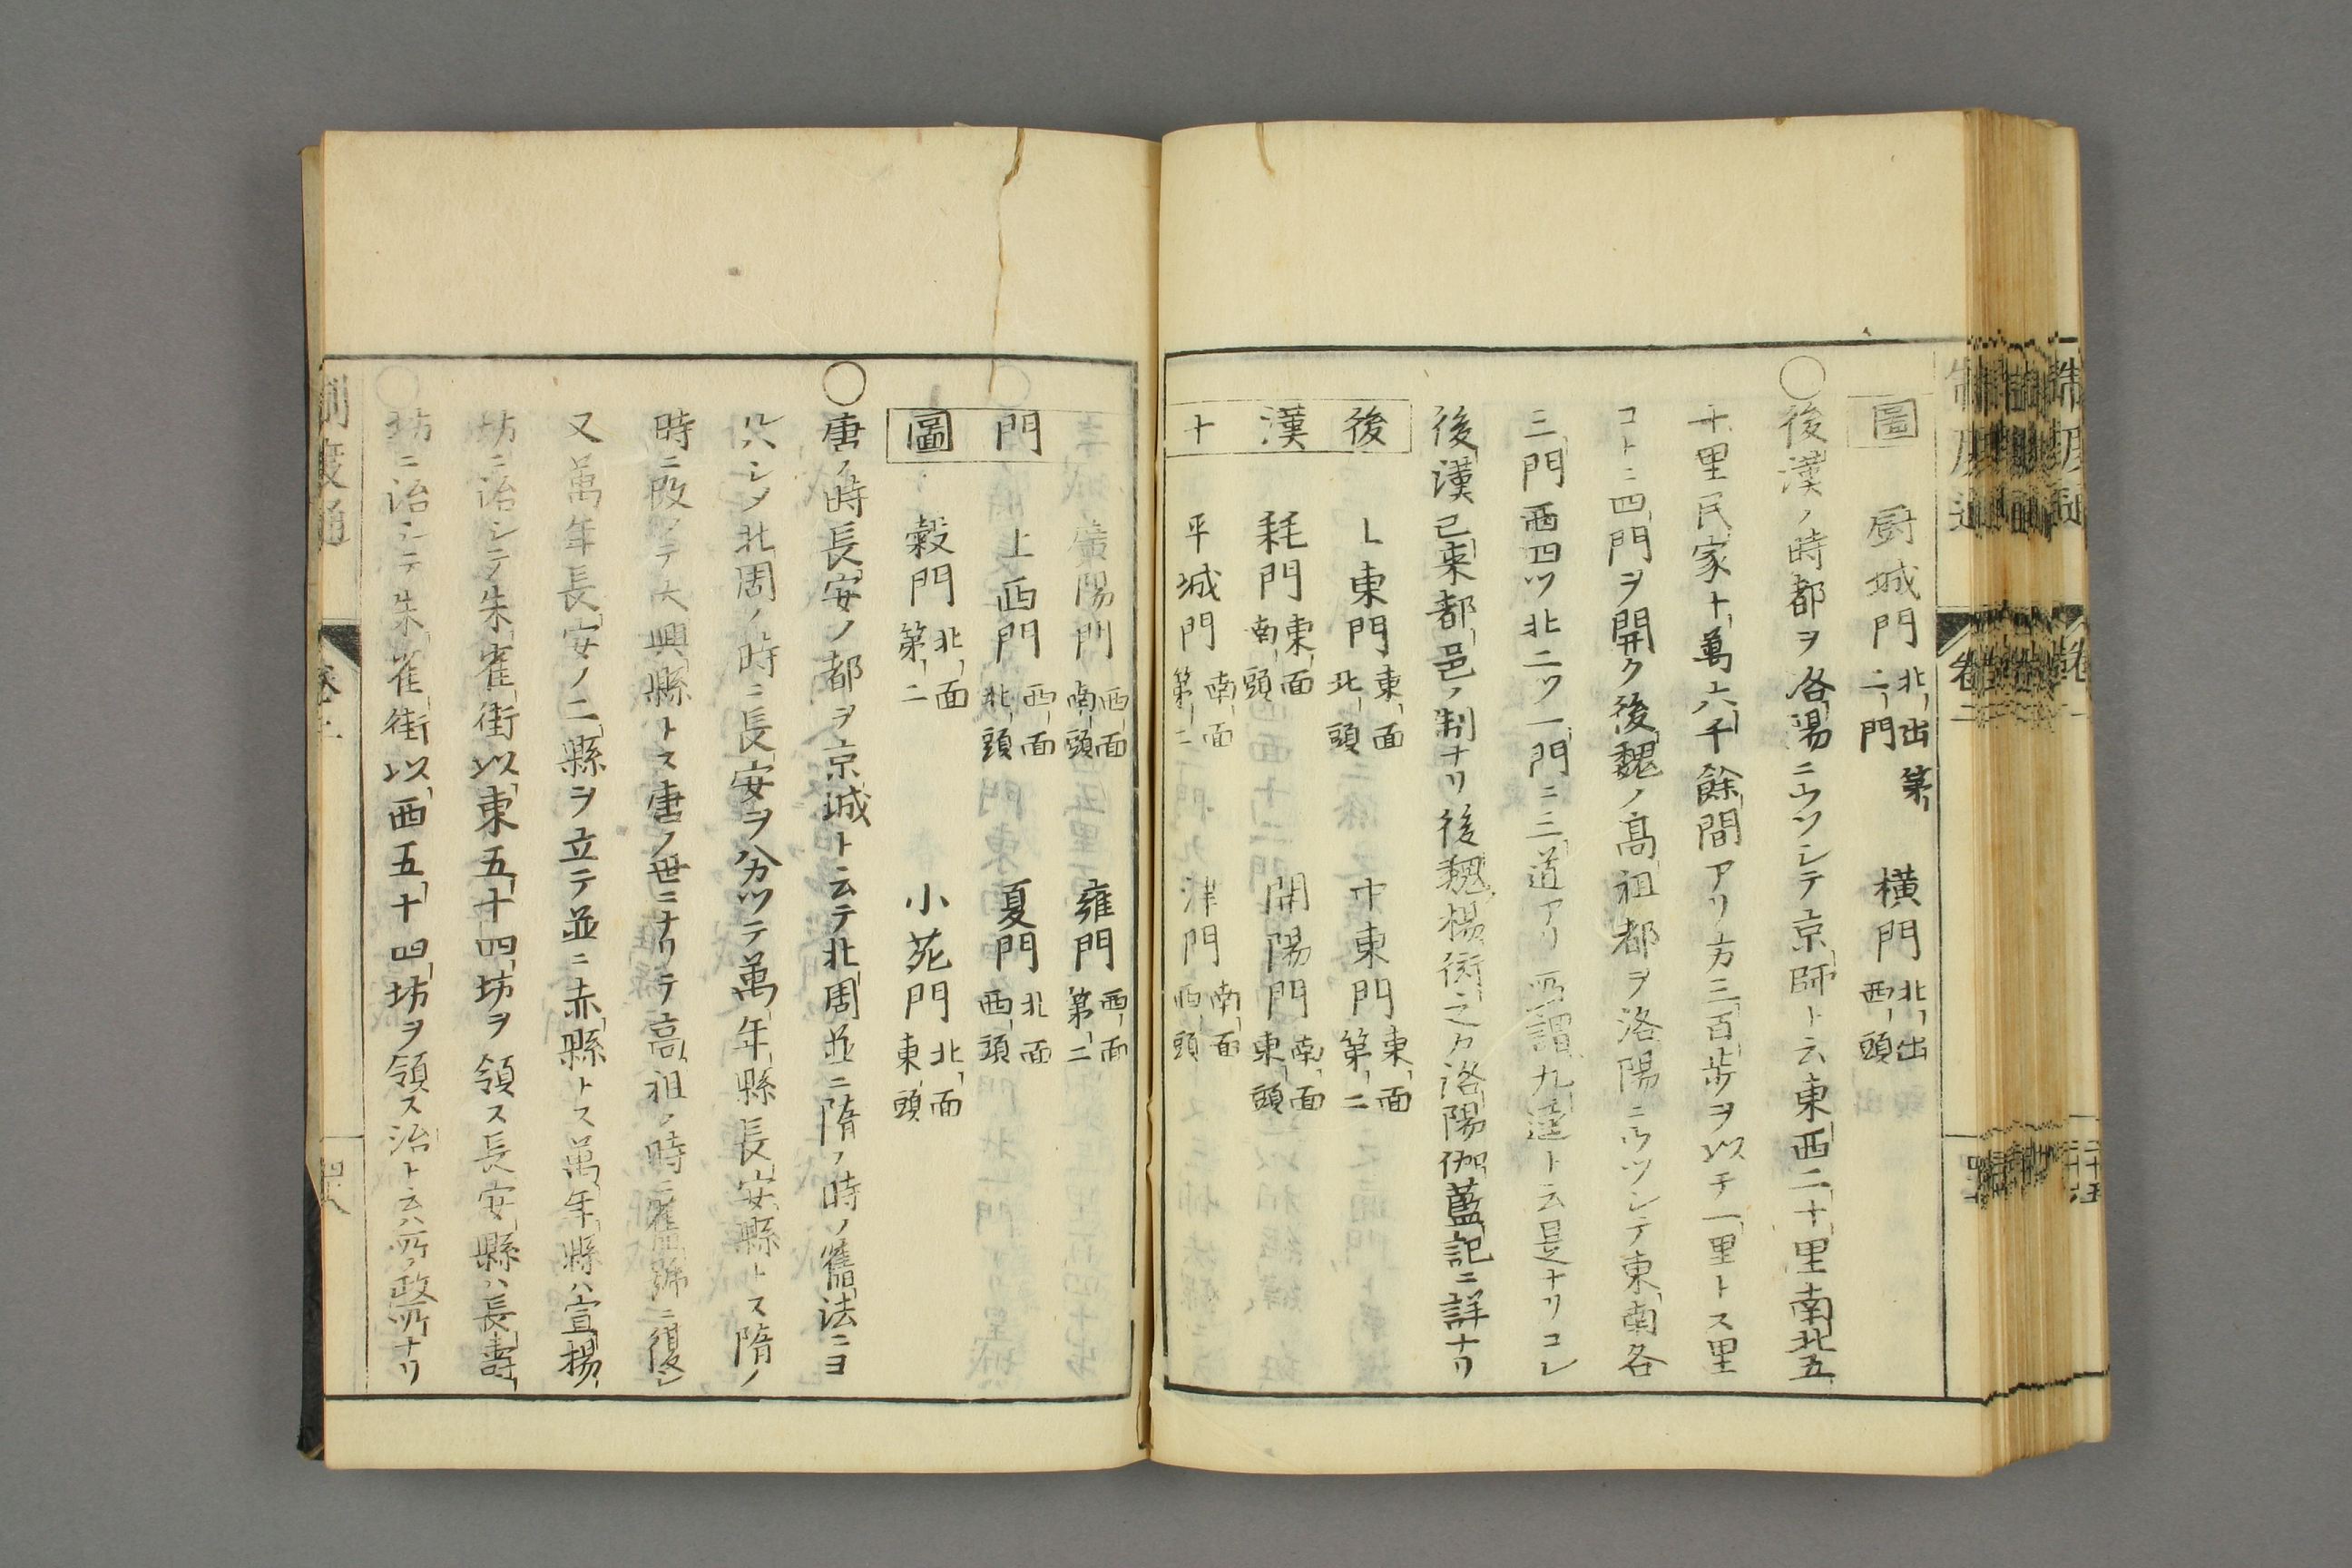 圖　厨城門 北出第二門　横門 北出西頭
○後漢ノ時都ヲ洛陽ニウツシテ京師ト云東西二十里南北五
十里民家十萬六千餘間アリ方三百歩ヲ以テ一里トス里
コトニ四門ヲ開ク後魏ノ高祖都ヲ洛陽ニウツシテ東南各
三門西四ツ北二ツ一門ニ三道アリ所謂九逵ト云是ナリコレ
後漢已來都邑ノ制ナリ後魏楊衒之カ洛陽伽藍記ニ詳ナリ
後　上東門 東面北頭　中東門 東面第二
漢　耗門 東面南頭　開陽門 南面東頭
十　平城門 南面第二　津門 南面西頭
廣陽門 西面南頭　雍門 西面第二
門　上西門 西面北頭　夏門 北面西頭
圖　穀門 北面第二　小苑門 北面東頭
○唐ノ時長安ノ都ヲ京城ト云テ北周並ニ隋ノ時ノ舊法ニヨ
レハシメ北周ノ時ニ長安ヲ分カツテ萬年縣長安縣トス隋ノ
時ニ改メテ大興縣トス唐ノ世ニナリテ高祖ノ時ニ舊號ニ復シ
又萬年長安ノ二縣ヲ立テ並ニ赤縣トス萬年縣ハ宣揚
坊ニ治シテ朱雀街以東五十四坊ヲ領ス長安縣ハ長壽
坊ニ治シテ朱雀街以西五十四坊ヲ領ス治ト云ハ所ノ政所ナリ
制度通　卷二　四十八